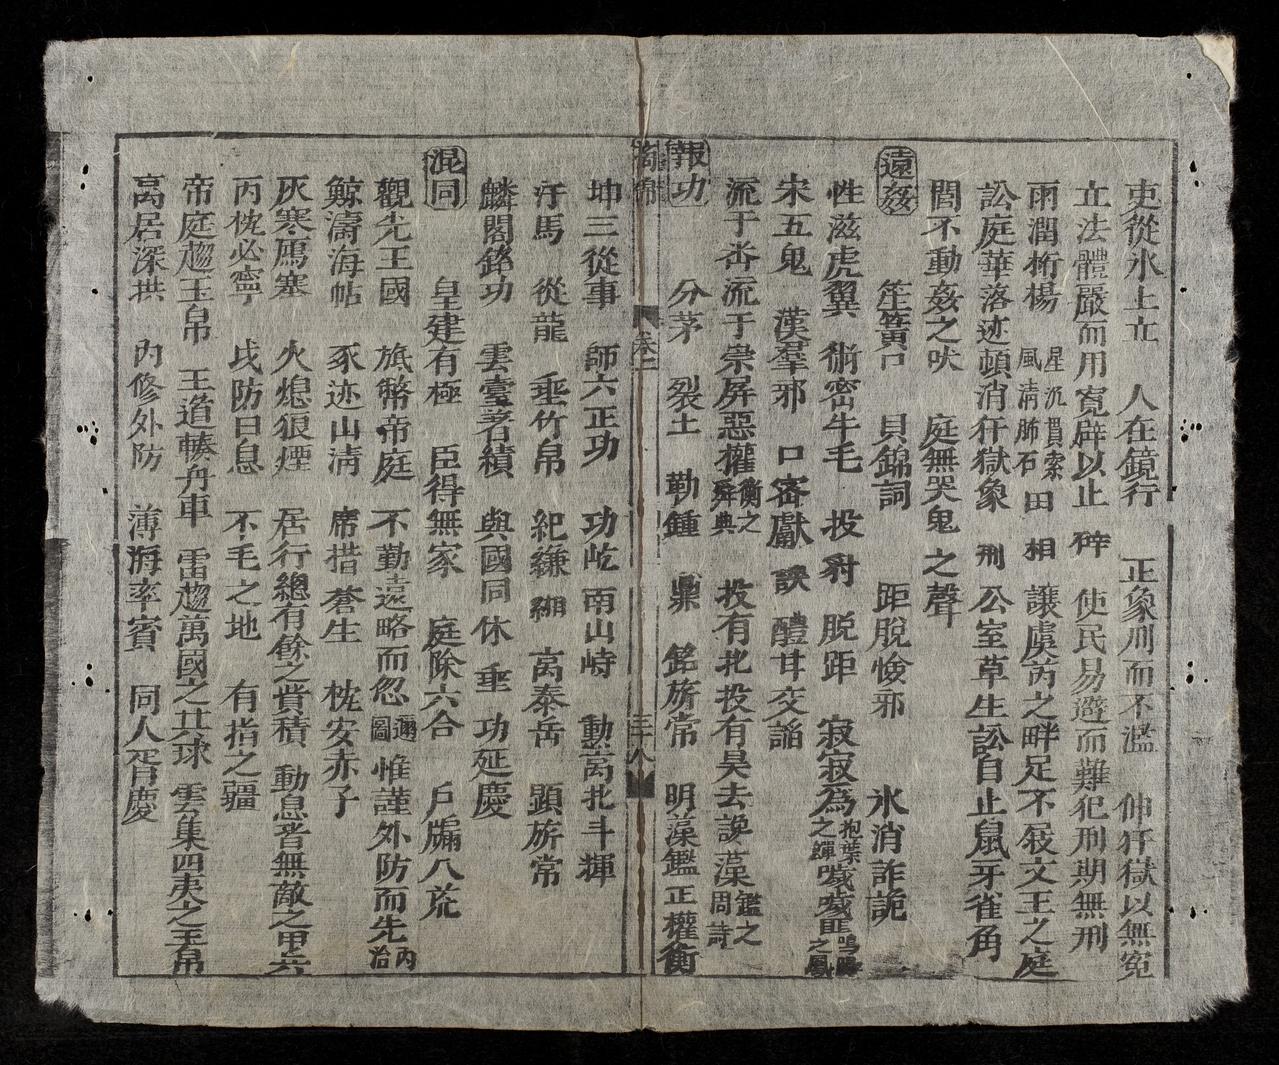 吏從氷上立　人在鏡行　正象刑而不濫　伸犴獄以無寃
立法體嚴而用寬辟以止辟　使民易避而難犯刑期無刑
雨潤桁楊　星沉貫索風清肺石　田相讓虞芮之畔足不屐文王之庭
訟庭華落迹頓消犴獄象刑　公室草生訟自止鼠牙雀角
閭不動姦之吠　庭無哭鬼之聲
遠姦　笙簧口　貝錦詞　距脫悛邪　氷消詐詭
性滋虎翼　術密牛毛　投豺脫距　寂寂爲抱葉之蟬噦噦罷鳴陽之鳳
宋五鬼　漢羣邪　口蜜獻諛　醴甘交謟
流于畨流于崇屏惡權衡之舜典　投有北投有昊去讒藻鑑之周詩
報功　分茅　裂土　勒鍾鼎　銘旂常　明藻鑑　正權衡
卷二
三十八
坤三從事　師六正功　功屹南山峙　勳萬北斗揮
汗馬　從龍　垂竹帛　紀縑緗　高泰岳　顕旂常
麟閣銘功　雲臺著績　與國同休　垂功延慶
混同　皇建有極　臣得無家　庭除六合　戶牖八荒
觀光王國　旅幣帝庭　不勤遠略而忽邇圖　惟謹外防而先內治
鯨濤海帖　豕迹山清　席措蒼生　枕安赤子
灰寒鴈塞　火熄狼煙　居行總有餘之貲積　動息音無敵之甲兵
丙枕必寧　戍防日息　不毛之地　有指之疆
帝庭趨玉帛　王道輳丹車　雷趨萬國之共球　雲集四夷之玉帛
高居深拱　內修外防　薄海率賓　同人胥慶